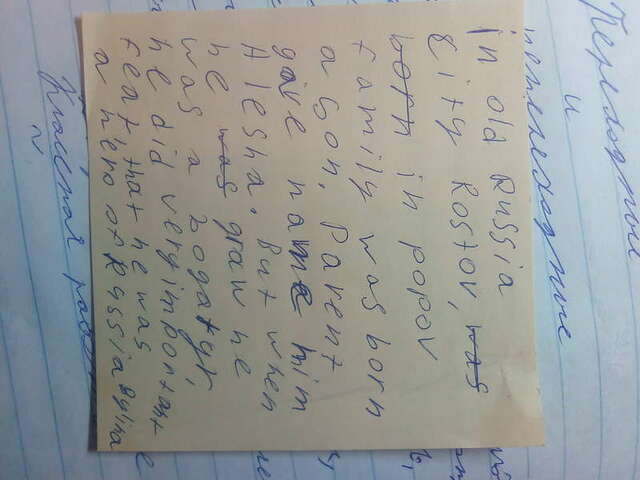 Переходные
и
непереходные
Классная
in old Russia
city Rostov, was
born in popov
family was born
a son. Parent
gave name him
Alesha. But when
he was graw he
was a bogatyr,
he did very important
feat that he was
a hero of Russia Bylina